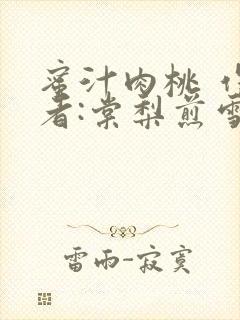 蜜汁肉桃
者:棠梨煎雪
雷雨-寂寞